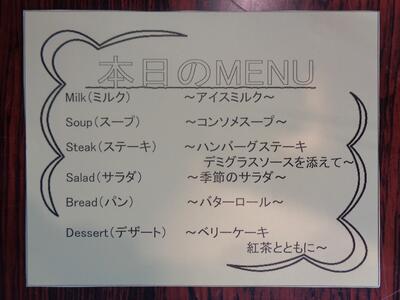 本日のMENU
Milk(ミルク) ～アイスミルク～
Soup(スープ) ～コンソメスープ～
Steak(ステーキ) ～ハンバーグステーキ
デミグラスソースを添えて～
Salad(サラダ) ～季節のサラダ～
Bread(パン) ～バターロール～
Dessert(デザート) ～ベリーケーキ
紅茶とともに～